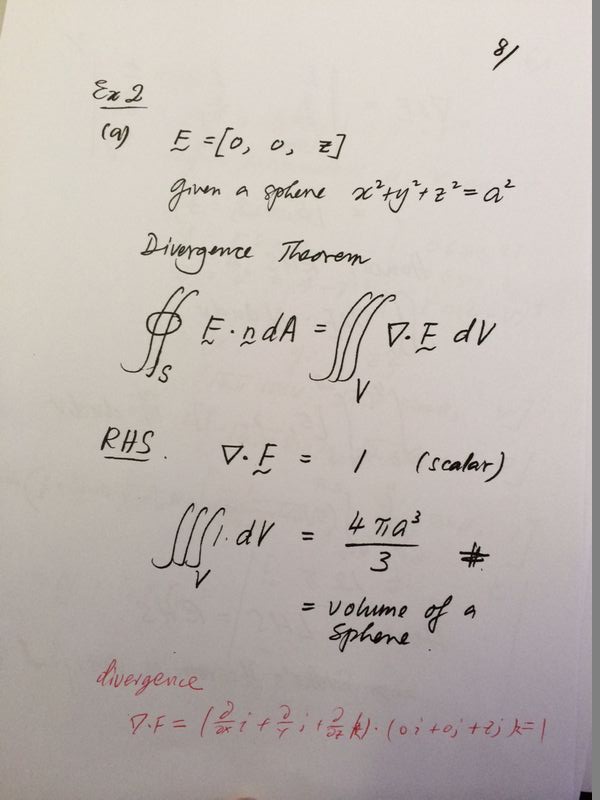 8/
Ex 2
(a) F = [0, 0, z]
Given a sphere x²+y²+z² = a²
Divergence Theorem
∯_S F · n dA = ∭_V ∇·F dV
RHS. ∇·F = 1 (scalar)
∭_V 1. dV = 4πa³/3 #
= volume of a
sphere.
divergence
∇·F = (∂/∂x i + ∂/y j + ∂/∂z k) · (0i + 0j + zj)k = 1